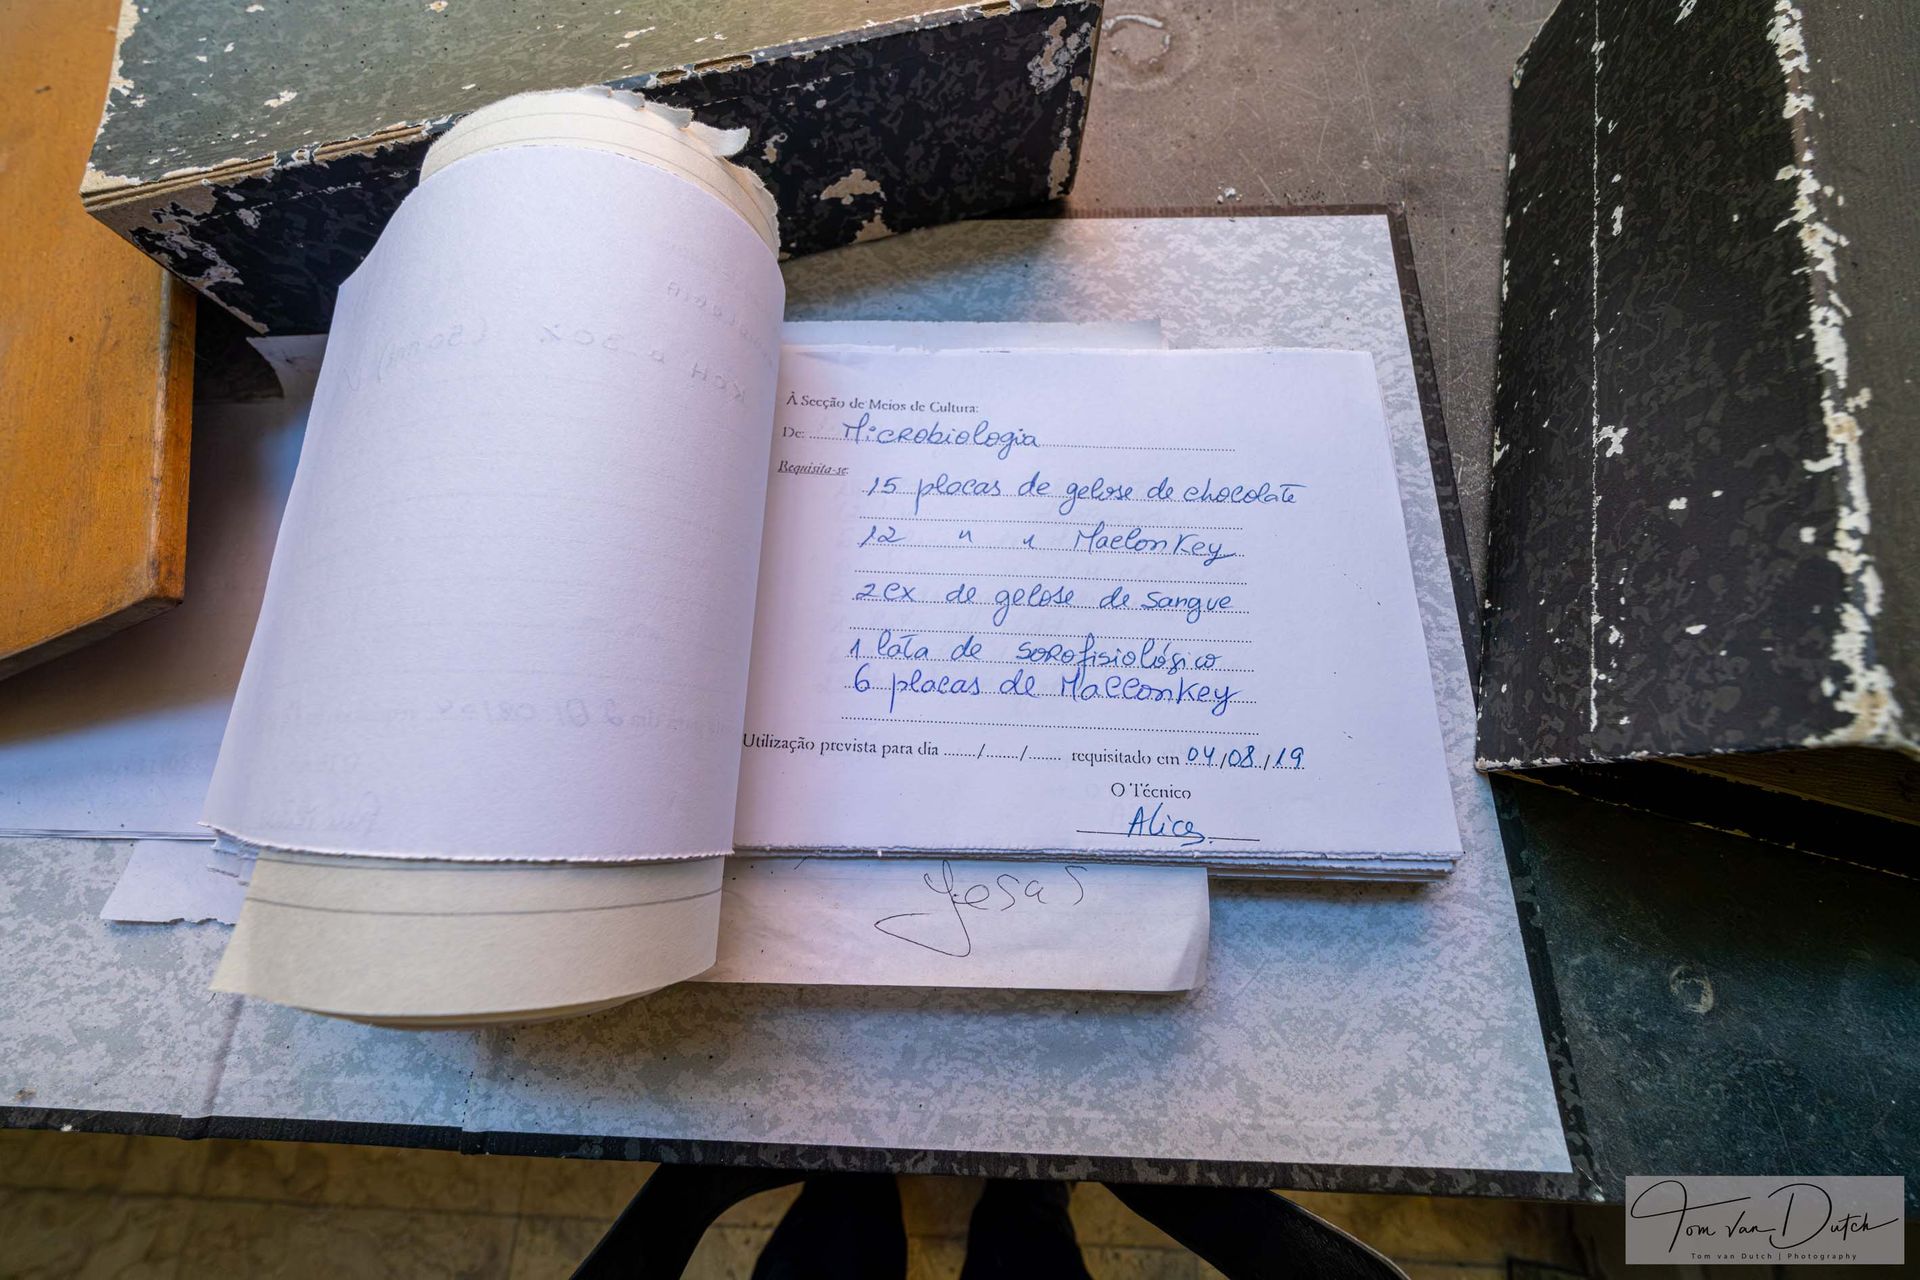 À Secção de Meios de Cultura:
De: Microbiologia
Requisita-se:
15 placas de gelose de chocolate
12 " " MacConKey
2 cx de gelose de sangue
1 lata de sorofisiológico
6 placas de MacConkey
Utilização prevista para dia ....../....../...... requisitado em 04/08/19
O Técnico
Alice
KOH a 30%
Tom van Dutch
Tom van Dutch | Photography